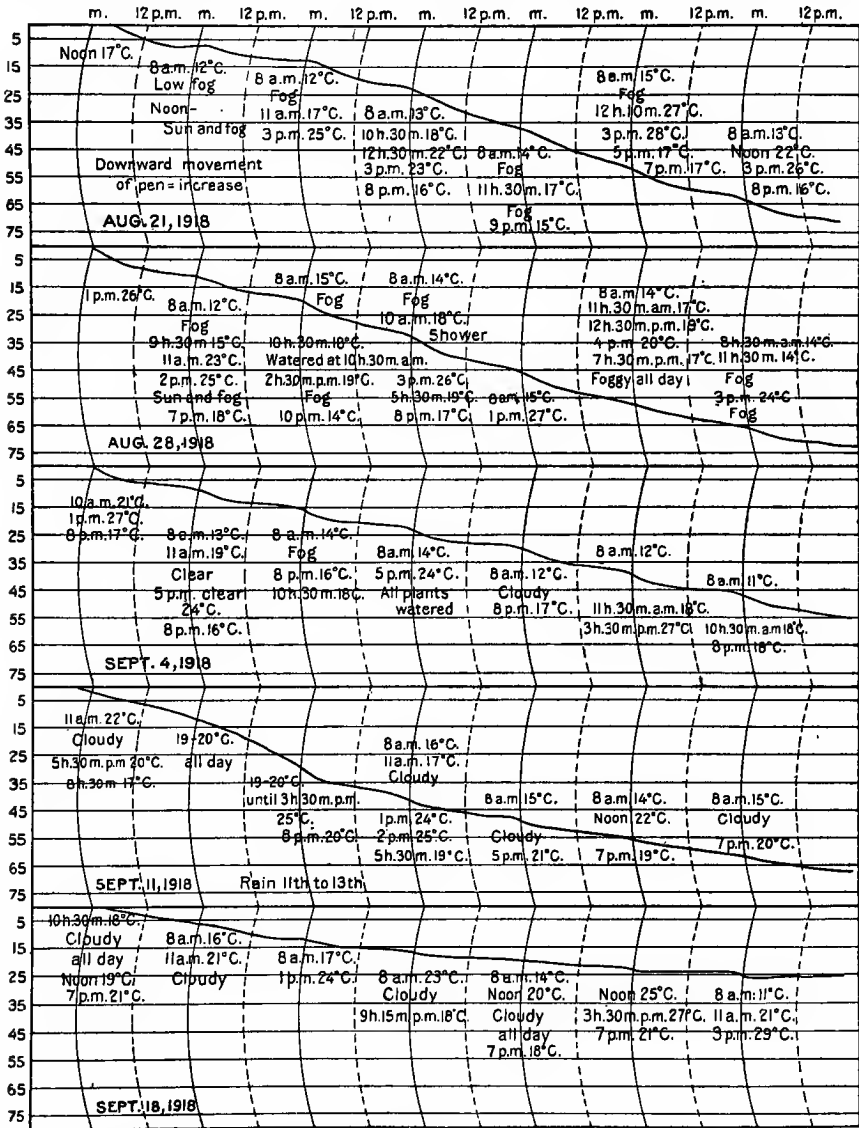 m. 12 p.m. m. 12 p.m. m. 12 p.m. m. 12 p.m. m. 12 p.m. m. 12 p.m. m. 12 p.m.
5
15
25
35
45
55
65
75
Noon 17°C.
8 a.m. 12°C.
Low fog
Noon-
Sun and fog
Downward movement
of pen = increase
AUG. 21, 1918
8 a.m. 12°C.
Fog
11 a.m. 17°C.
3 p.m. 25°C.
8 a.m. 13°C.
10 h. 30 m. 18°C.
12 h. 30 m. 22°C.
3 p.m. 23°C.
8 p.m. 16°C.
8 a.m. 14°C.
Fog
11 h. 30 m. 17°C.
Fog
9 p.m. 15°C.
8 a.m. 15°C.
Fog
12 h. 10 m. 27°C.
3 p.m. 28°C.
5 p.m. 17°C.
7 p.m. 17°C.
8 a.m. 13°C.
Noon 22°C.
3 p.m. 26°C.
8 p.m. 16°C.
5
15
25
35
45
55
65
75
1 p.m. 26°C.
8 a.m. 12°C.
Fog
9 h. 30 m 15°C.
11 a.m. 23°C.
2 p.m. 25°C.
Sun and fog
7 p.m. 18°C.
AUG. 28, 1918
8 a.m. 15°C.
Fog
10 h. 30 m. 18°C.
Watered at 10 h. 30 m. a.m.
2 h. 30 m. p.m. 19°C.
Fog
10 p.m. 14°C.
8 a.m. 14°C.
Fog
10 a.m. 18°C.
Shower
3 p.m. 26°C.
5 h. 30 m. 19°C.
8 p.m. 17°C.
8 a.m. 15°C.
1 p.m. 27°C.
8 a.m. 14°C.
11 h. 30 m. a.m. 17°C.
12 h. 30 m. p.m. 19°C.
4 p.m. 20°C.
7 h. 30 m. p.m. 17°C.
Foggy all day
8 h. 30 m. a.m. 14°C.
11 h. 30 m. 14°C.
Fog
3 p.m. 24°C
Fog
5
15
25
35
45
55
65
75
10 a.m. 21°C.
1 p.m. 27°C.
8 p.m. 17°C.
8 a.m. 13°C.
11 a.m. 19°C.
Clear
5 p.m. clear
24°C.
8 p.m. 16°C.
SEPT. 4, 1918
8 a.m. 14°C.
Fog
8 p.m. 16°C.
10 h. 30 m. 18C.
8 a.m. 14°C.
5 p.m. 24°C.
All plants
watered
8 a.m. 12°C.
Cloudy
8 p.m. 17°C.
8 a.m. 12°C.
11 h. 30 m. a.m. 18°C.
3 h. 30 m. p.m. 27°C
8 a.m. 11°C.
10 h. 30 m. a.m 18°C.
8 p.m. 18°C.
5
15
25
35
45
55
65
75
11 a.m. 22°C.
Cloudy
5 h. 30 m. p.m 20°C.
8 h. 30 m 17°C.
19-20°C.
all day
SEPT. 11, 1918
Rain 11th to 13th
19-20°C.
until 3 h. 30 m. p.m.
25°C.
8 p.m. 20°C
8 a.m. 16°C.
11 a.m. 17°C.
Cloudy
1 p.m. 24°C.
2 p.m. 25°C.
5 h. 30 m. 19°C.
8 a.m. 15°C.
Cloudy
5 p.m. 21°C.
8 a.m. 14°C.
Noon 22°C.
7 p.m. 19°C.
8 a.m. 15°C.
Cloudy
7 p.m. 20°C.
5
15
25
35
45
55
65
75
10 h. 30 m. 18°C.
Cloudy
all day
Noon 19°C
7 p.m. 21°C.
8 a.m. 16°C.
11 a.m. 21°C.
Cloudy
8 a.m. 17°C.
1 p.m. 24°C.
8 a.m. 23°C.
Cloudy
9 h. 15 m p.m. 18°C.
8 a.m. 14°C.
Noon 20°C.
Cloudy
all day
7 p.m. 18°C.
Noon 25°C.
3 h. 30 m. p.m. 27°C.
7 p.m. 21°C.
8 a.m. 11°C.
11 a.m. 21°C.
3 p.m. 29°C.
SEPT. 18, 1918